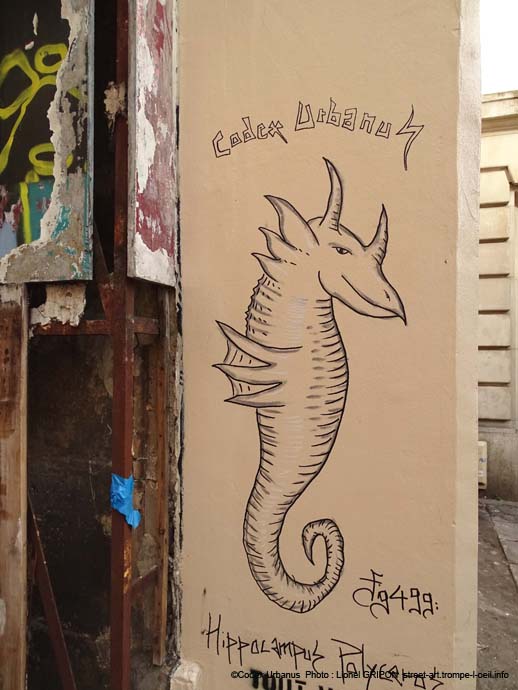 Codex Urbanus
Fg499:
Hippocampus Polyceros
©Codex Urbanus Photo : Lionel GRIPON street-art.trompe-l-oeil.info
TOUT